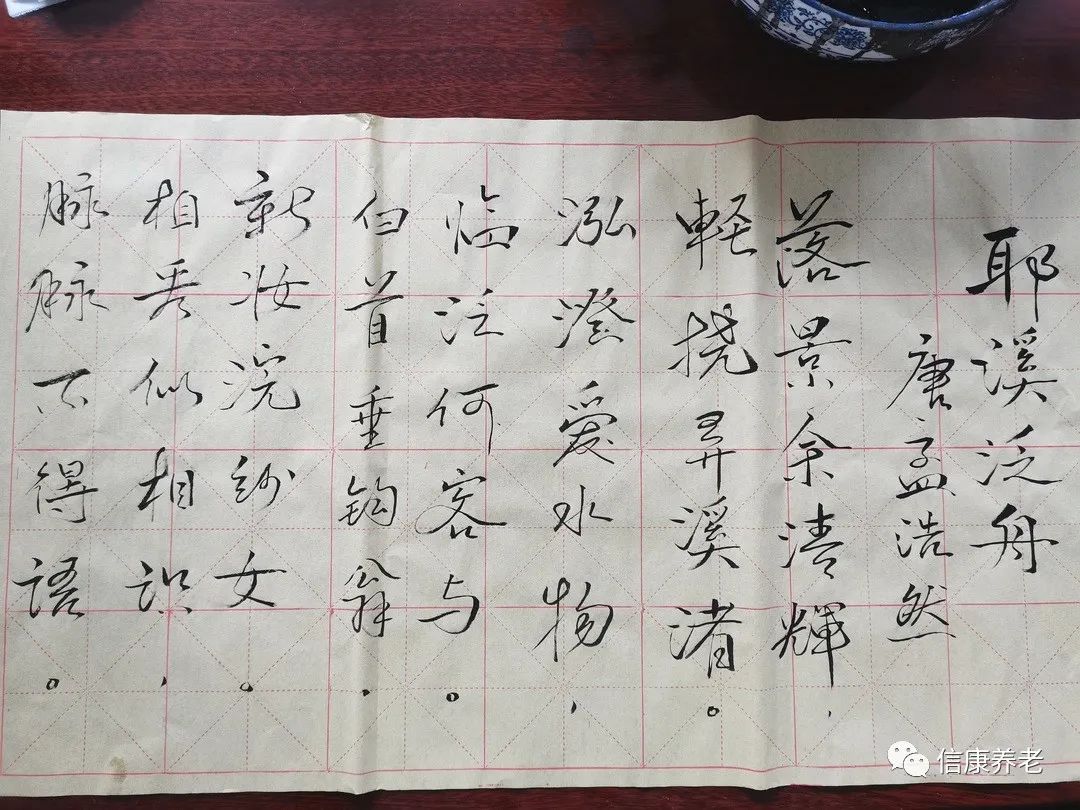 耶溪泛舟
唐孟浩然
落景余清輝，
軽挠弄溪渚。
泓澄爱水物，
临泛何容与。
白首垂钩翁，
新妆浣紗女。
相看似相识，
脉脉不得語。
信康养老